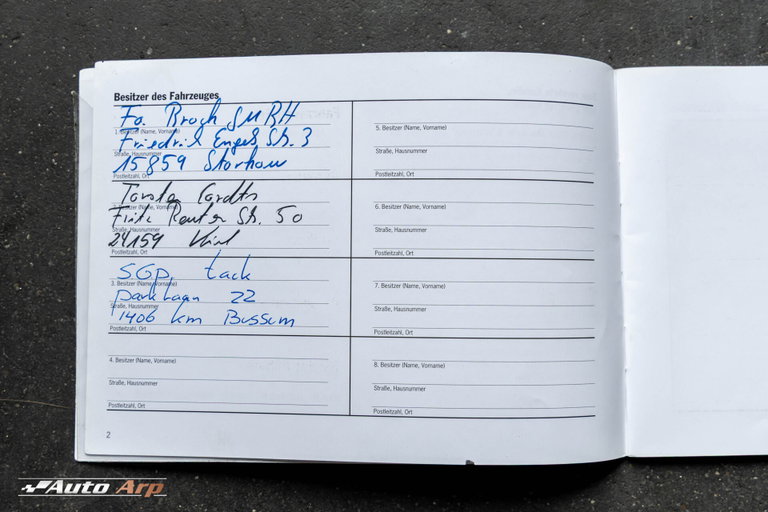 Besitzer des Fahrzeuges
Fa. Broch GMBH
1. Besitzer (Name, Vorname)
Friedrich Engels Str. 3
Straße, Hausnummer
15859 Storkow
Postleitzahl, Ort
Fritz Reuter Str. 50
Straße, Hausnummer
24159 Kiel
Postleitzahl, Ort
SGP. tack
3. Besitzer (Name, Vorname)
parklaan 22
Straße, Hausnummer
1406 km Bussum
Postleitzahl, Ort
4. Besitzer (Name, Vorname)
Straße, Hausnummer
Postleitzahl, Ort
5. Besitzer (Name, Vorname)
Straße, Hausnummer
Postleitzahl, Ort
6. Besitzer (Name, Vorname)
Straße, Hausnummer
Postleitzahl, Ort
7. Besitzer (Name, Vorname)
Straße, Hausnummer
Postleitzahl, Ort
8. Besitzer (Name, Vorname)
Straße, Hausnummer
Postleitzahl, Ort
2
Auto Arp